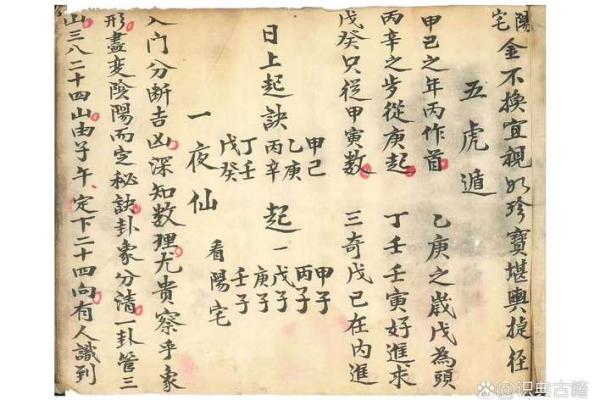 陽宅金不換宜視如珍寶堪輿捷径
五虎遁
甲己之年丙作首 乙庚之歲戊為頭
丙辛之步從庚起 丁壬壬寅好進求
戊癸只從甲寅數 三奇戊己在内進
日上起訣
甲己
乙庚
丙辛
丁壬
戊癸
起一
甲子
丙子
戊子
庚子
壬子
一夜仙 看陽宅
入门分断吉凶深知数理尤貴察乎象
形盡変陰陽而定秘訣卦象分清一卦管三
山三八二十四山由子午定下二十四向有人識到
识典古籍